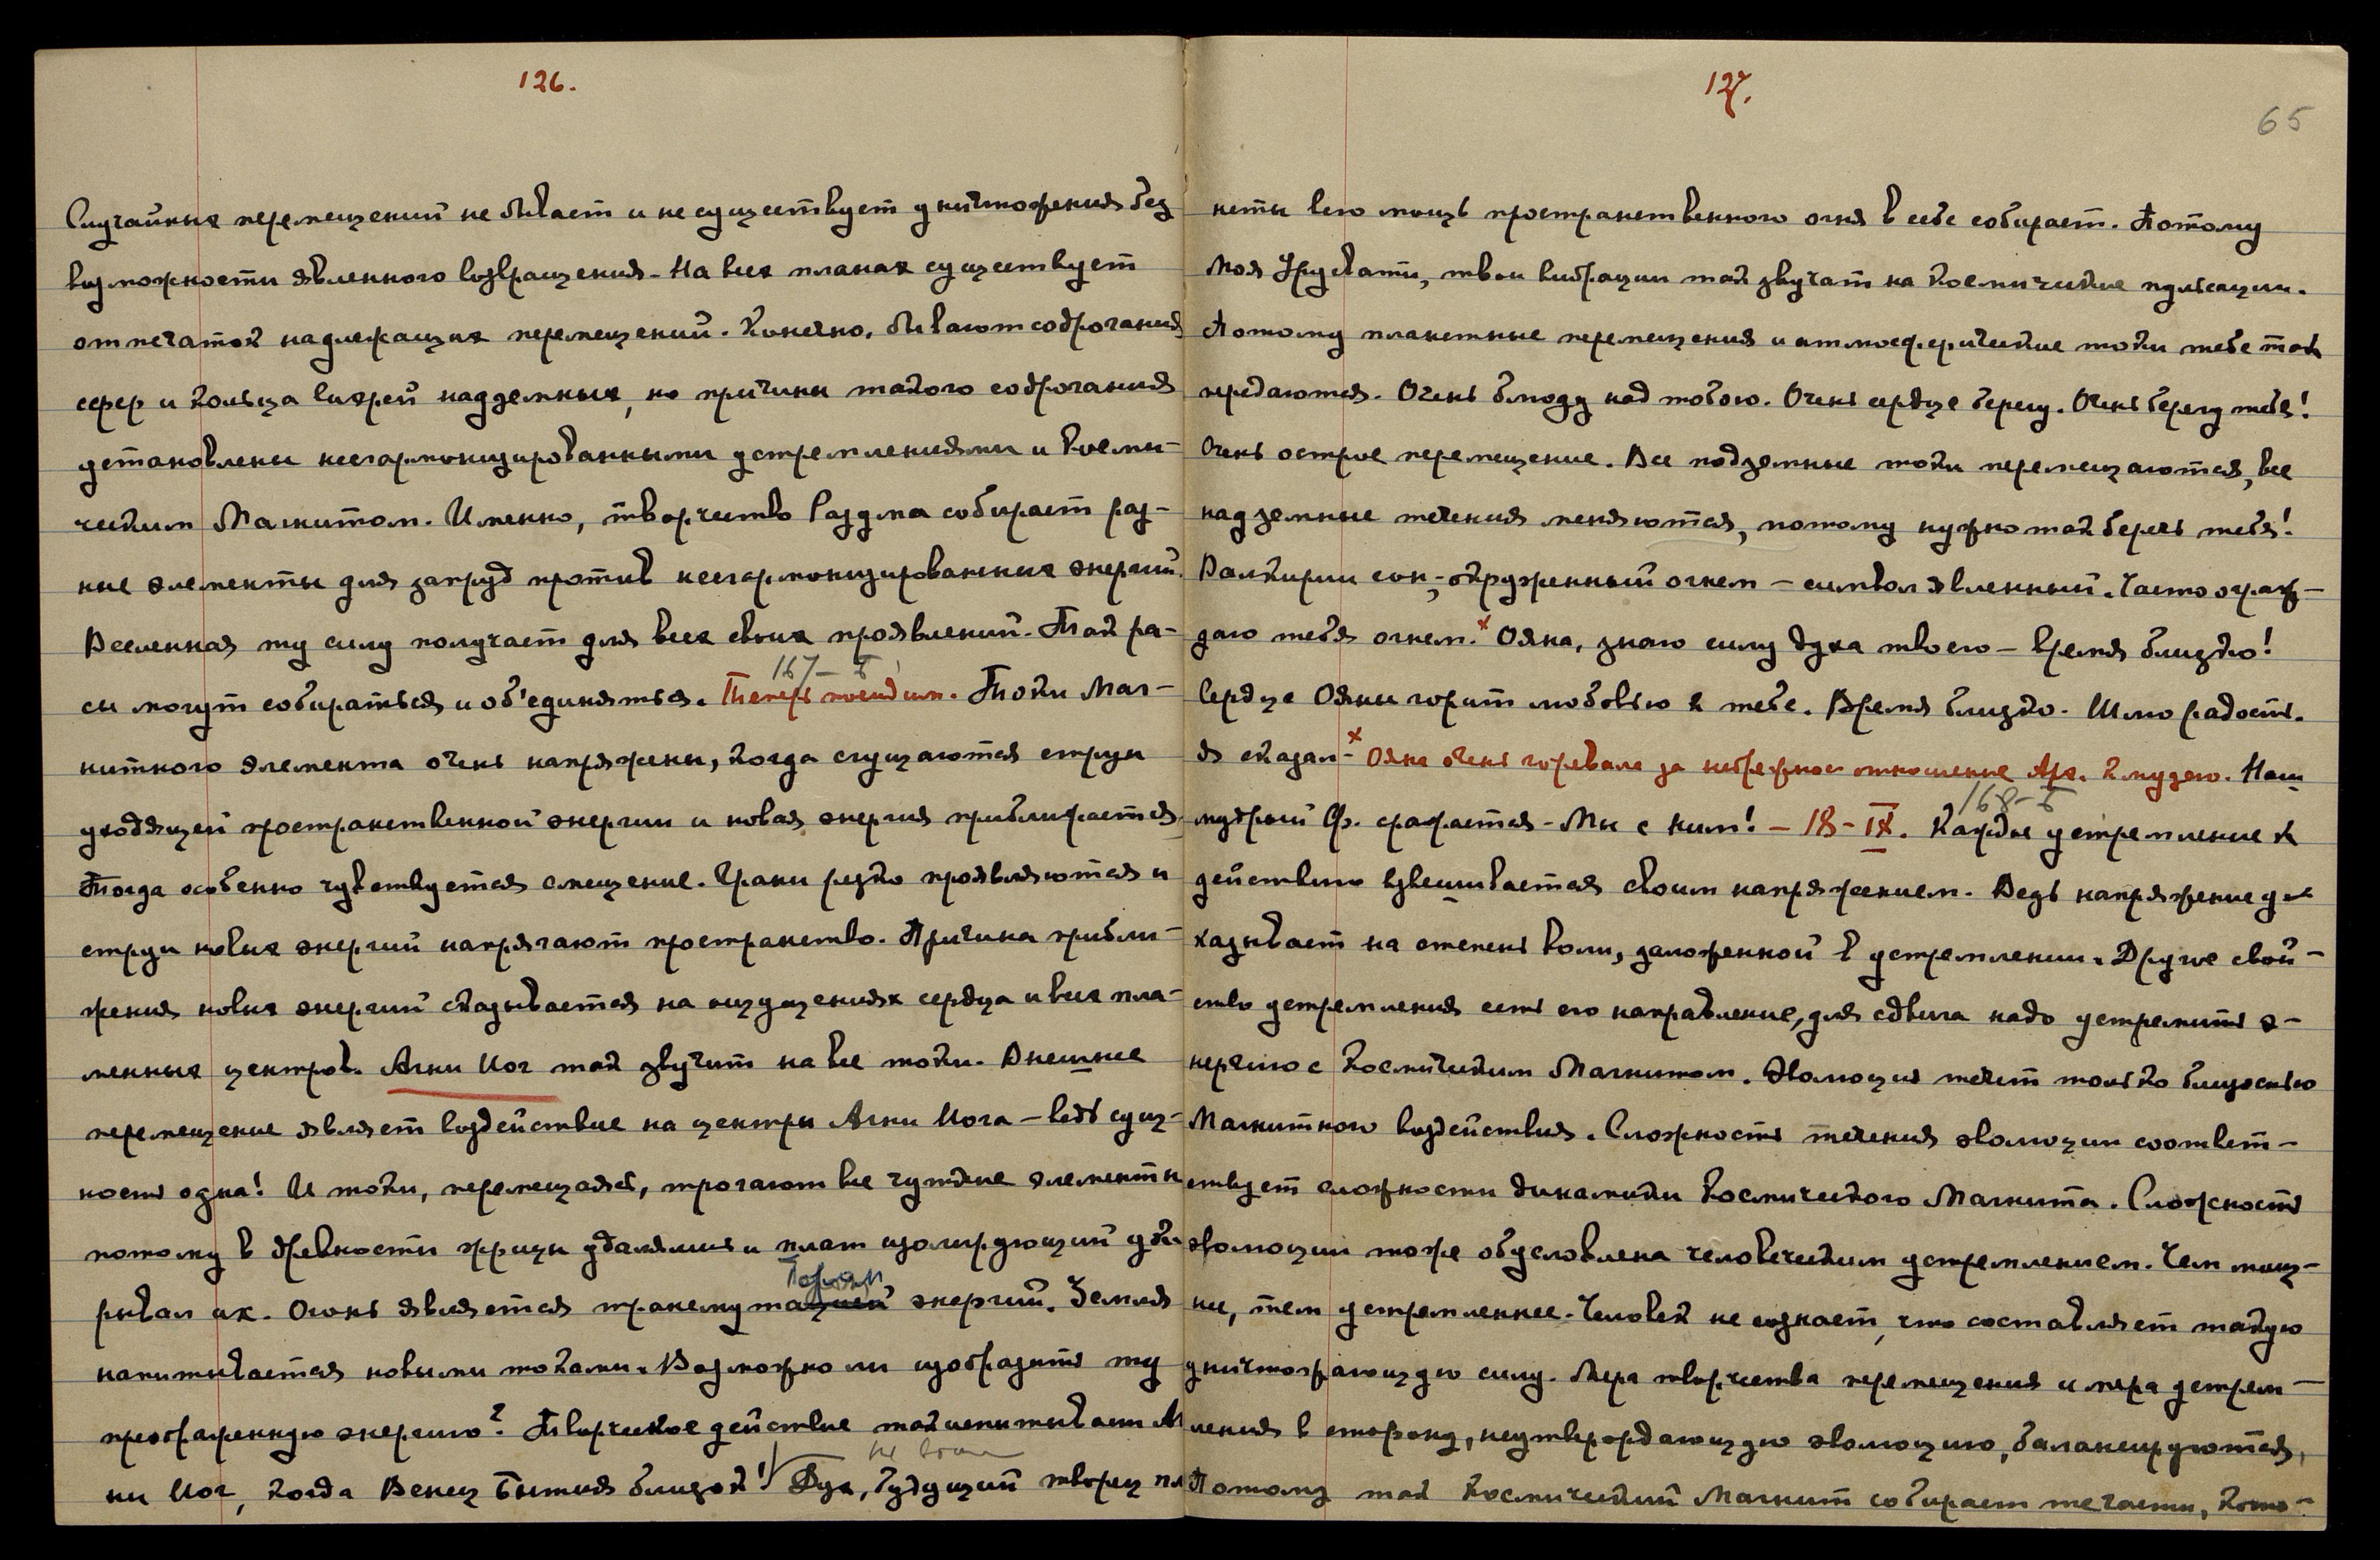 126.
Случайных перемещений не бывает и не существует уничтожения без
возможности явленного возвращения. На всех планах существует
отпечаток надлежащих перемещений. Конечно, бывают содрогания
сфер и кольца вихрей надземных, но причины такого содрогания
установлены несгармонизированными устремлениями и Косми-
ческим Магнитом. Именно, творчество Разума собирает раз-
ные элементы для запруд против несгармонизированных энергий.
Вселенная ту силу получает для всех своих проявлений. Так ра-
сы могут собираться и об'единяться. Теперь поендим. Токи Маг-
167-Б
нитного элемента очень напряжены, когда сгущаются струи
уходящей пространственной энергии и новая энергия приближается.
Тогда особенно чувствуется смещение. Грани резко проявляются и
струи новых энергий напрягают пространство. Причина прибли-
жения новых энергий сказывается на ощущениях сердца и всех пла-
менных центров. Агни Иог так звучит на все токи. Внешнее
перемещение являет воздействие на центры Агни Иога – ведь сущ-
ность одна! И токи, перемещаясь, трогают все чуткие элементы
потому в древности жрецы удалялись и плат изолирующий ук-
рывал их. Огонь является трансмутацией энергий. Земля
напитывается новыми токами. Возможно ли изобразить ту
преображенную энергию? Творческое действие так испытывает Аг
ни Иог, когда Венец Бытия близок! Дух, будущий творец пла
127.
65
неты всю мощь пространственного огня в себе собирает. Потому
Моя Урусвати, твои вибрации так звучат на космические пульсации.
Потому планетные перемещения и атмосферические токи тебе так
передаются. Очень блюду над тобою. Очень сердце берегу. Очень берегу тебя!
Очень острое перемещение. Все подземные токи перемещаются, все
надземные течения меняются, потому нужно так беречь тебя!
Валкирии сон, – окруженный огнем – символ явленный. Часто ограж-
даю тебя огнем. × Ояна, знаю силу духа твоего – время близко!
Сердце Ояны горит любовью к тебе. Время близко. Шлю радость.
Я сказал – × Ояна очень горевала за небрежное отношение Арх. к музею. Наш
мудрый Ф. сражается – Мы с ним! – 18-IX. Каждое устремление к
168-Б
действию взвешивается своим напряжением. Ведь напряжение у-
казывает на степень воли, заложенной в устремлении. Другое свой-
ство устремления есть его направление, для сдвига надо устремить э-
нергию с Космическим Магнитом. Эволюция течет только близостью
Магнитного воздействия. Сложность течения эволюции соответ-
ствует сложности динамики Космического Магнита. Сложность
эволюции тоже обусловлена человеческим устремлением. Чем мощ-
нее, тем устремленнее. Человек не сознает, что составляет такую
уничтожающую силу. Мера творчества перемещения и мера устрем-
ления в сторону, неутверждающую эволюцию, балансируются,
Потому так Космический Магнит собирает те части, кото-